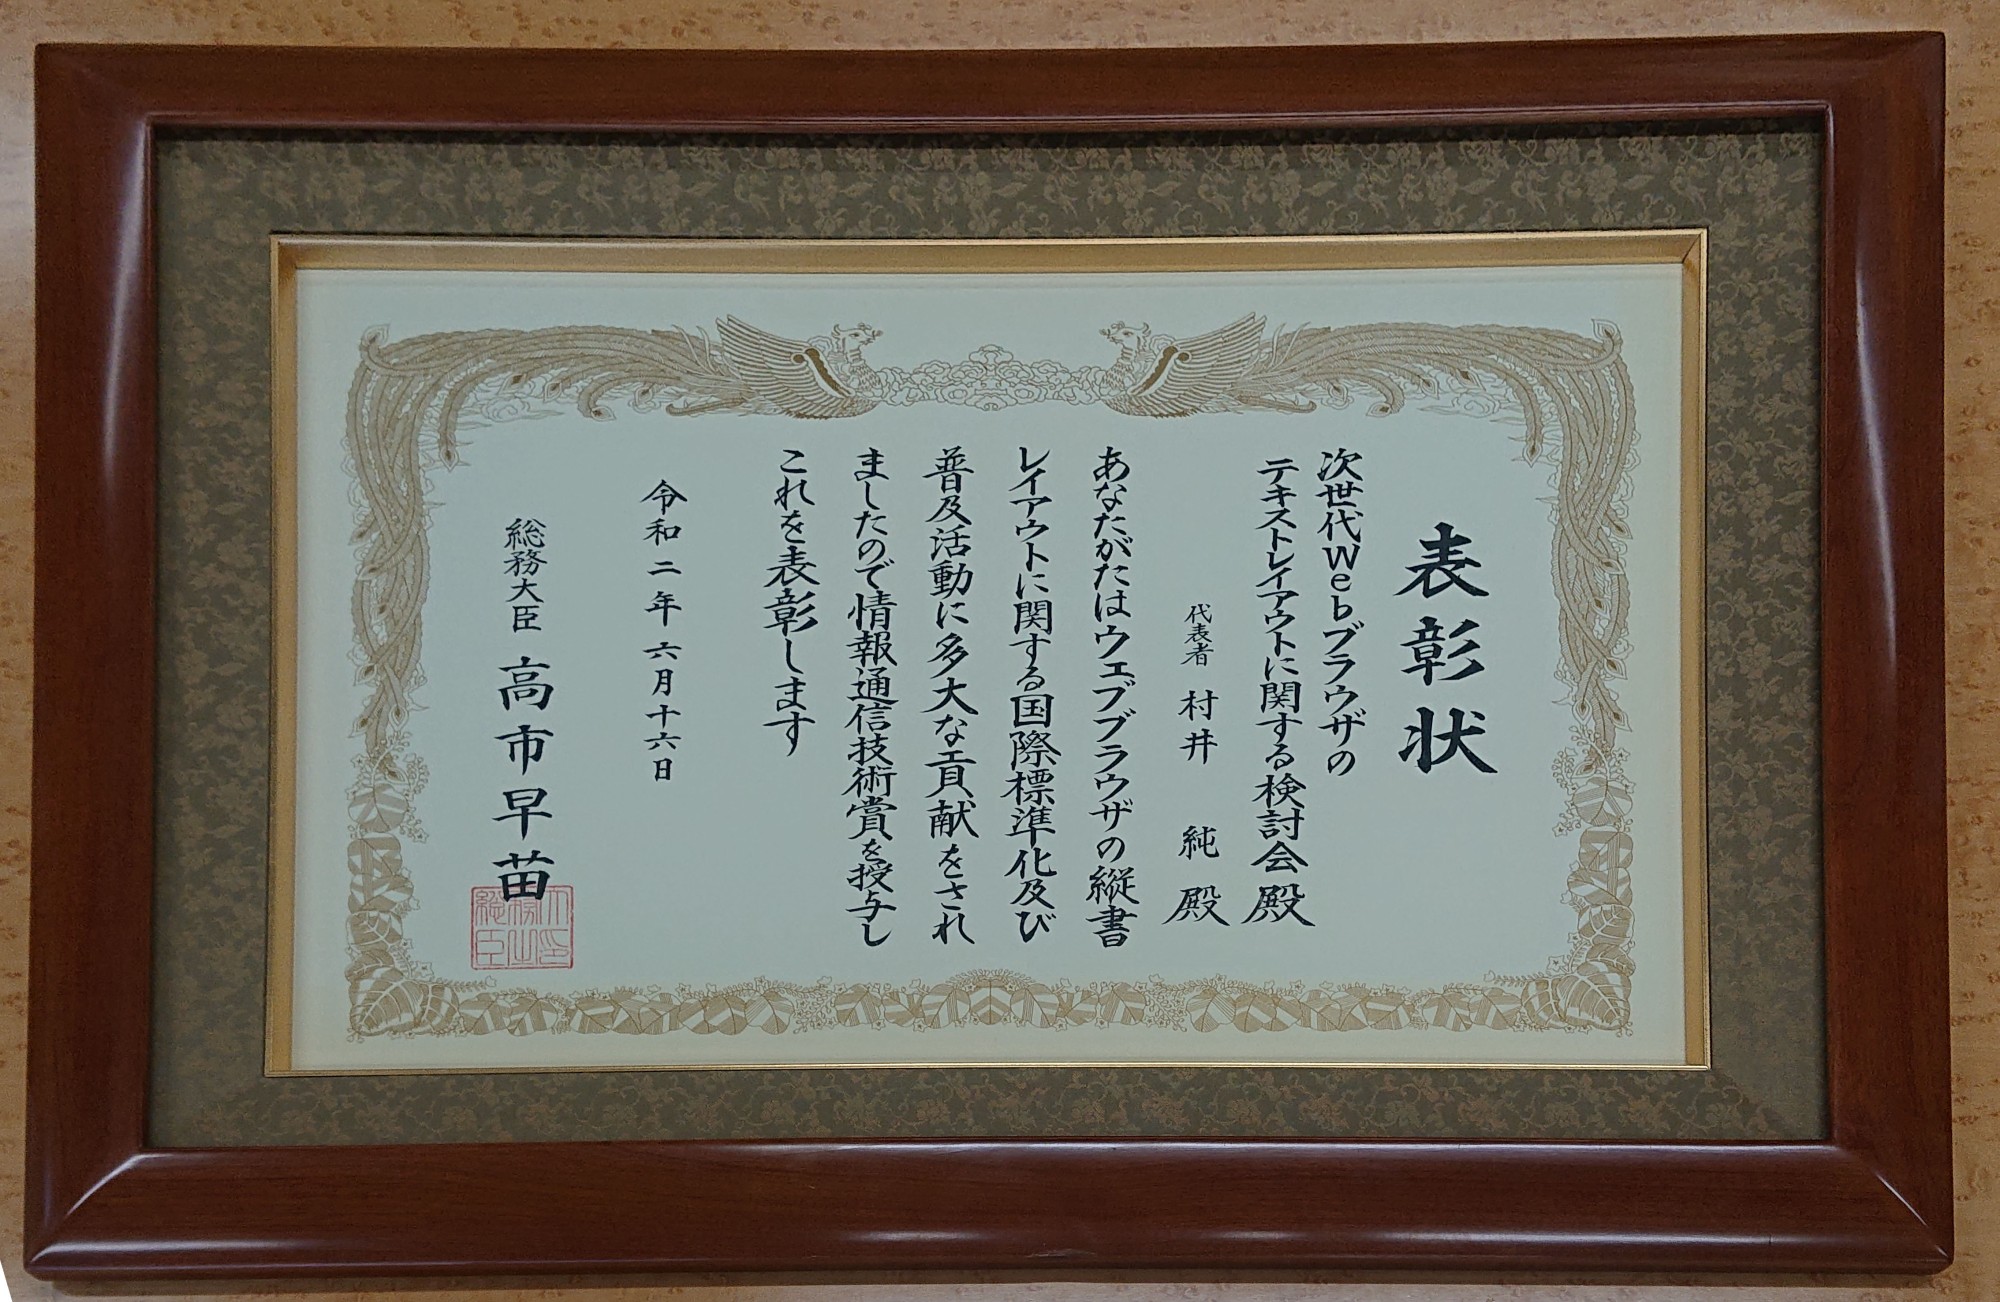 表彰状
次世代Webブラウザの
テキストレイアウトに関する検討会殿
代表者 村井 純 殿
あなたがたはウェブブラウザの縦書
レイアウトに関する国際標準化及び
普及活動に多大な貢献をされ
ましたので情報通信技術賞を授与し
これを表彰します
令和二年六月十六日
総務大臣 高市早苗